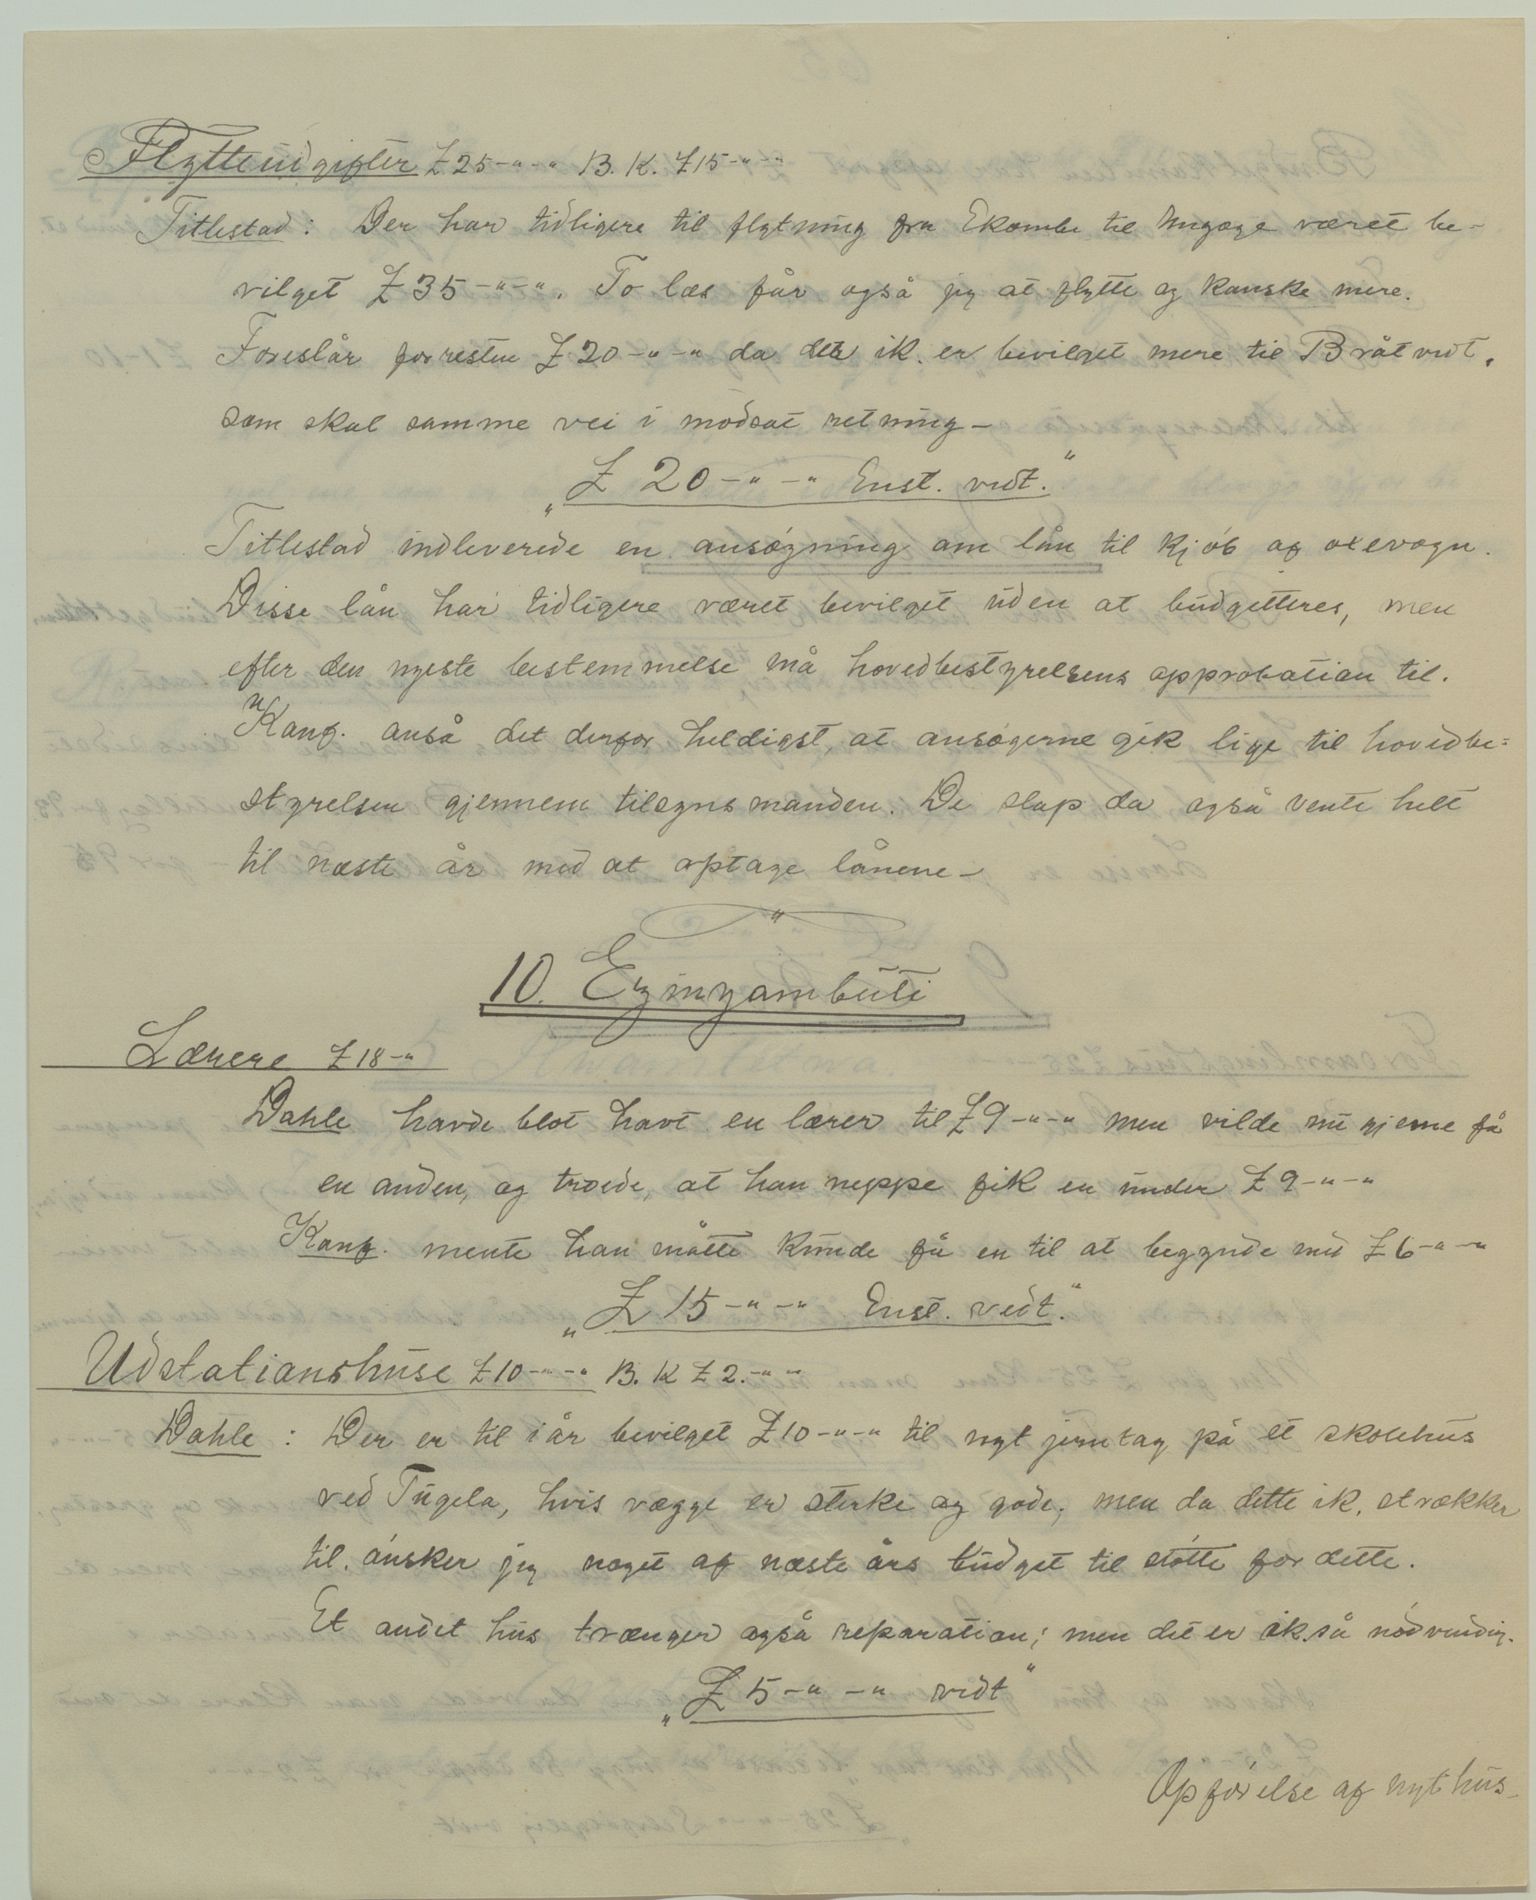 Flytteudgifter £ 25-"-" B. K. £ 15-"-"
Titlestad: Der har tidligere til flytning fra Ekombe til Ungoye været be-
vilget £ 35-"-". To læs får også jeg at flytte og kanske mere.
Foreslår forresten £ 20-"-" da det ik. er bevilget mere til Bråtvedt,
som skal samme vei i modsat retning-
"£ 20-"-" Enst. vedt."
Titlestad indleverede en ansøgning om lån til kjøb af oxevogn.
Disse lån har tidligere været bevilget uden at budgetteres, men
efter den nyeste bestemmelse må hovedbestyrelsens approbation til.
Konf. anså det derfor heldigst, at ansøgerne gik lige til hovedbe=
styrelsen gjennem tilsynsmanden. De slap da også vente helt
til næste år med at optage lånene-
"
10. Ezinyambuti
Lærere £ 18-"
Dahle havde blot havt en lærer til £ 9-"-" men vilde nu gjerne få
en anden, og troede, at han neppe fik en under £ 9-"-"
Konf. mente han måtte kunde få en til at begynde med £ 6-"-"
"£ 15-"-" Enst. vedt."
Udstationshuse £ 10-"-" B. K £ 2.-"-"
Dahle: Der er til i år bevilget £ 10-"-" til nyt jerntag på et skolehus
ved Tugela, hvis vægge er sterke og gode; men da dette ik. strækker
til, ønsker jeg noget af næste års budget til støtte for dette.
Et andet hus trænger også reparation; men det er ik. så nødvendig.
"£ 5-"-" vedt"
Opførelse af nyt hus-